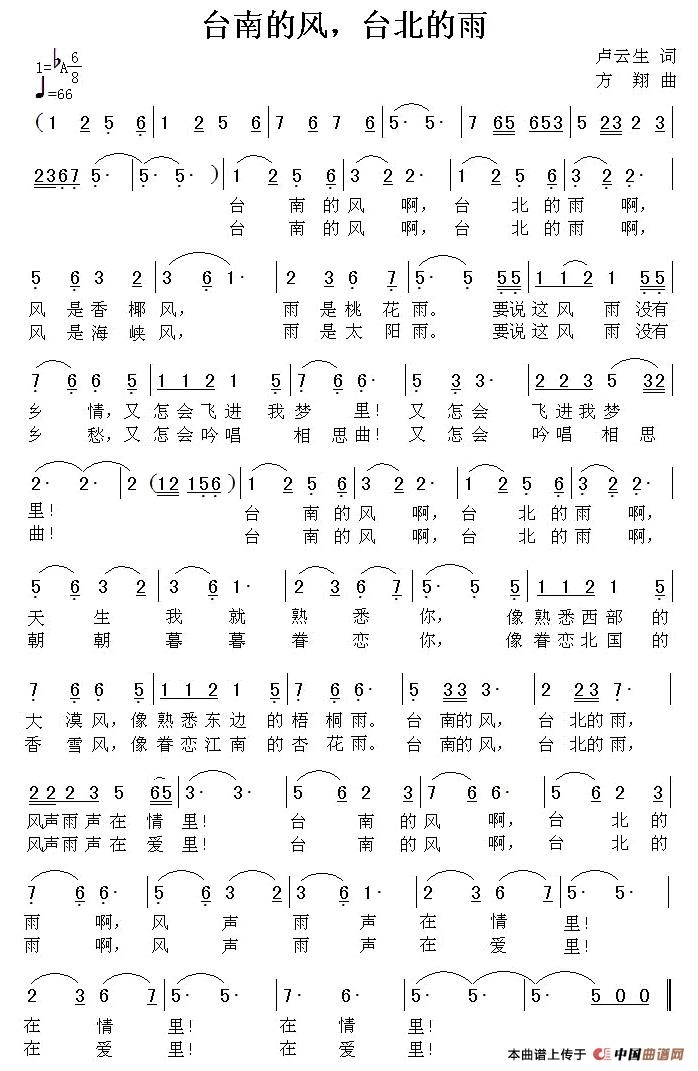 台南的风，台北的雨
1=♭A 6/8
卢云生 词
♩=66
方 翔 曲
(1 2 5 6 | 1 2 5 6 | 7 6 7 6 | 5· 5· | 7 65 653 | 5 23 2 3 |
2367 5· | 5· 5· ) | 1 2 5 6 | 3 2 2· | 1 2 5 6 | 3 2 2· |
台 南 的 风 啊， 台 北 的 雨 啊，
台 南 的 风 啊， 台 北 的 雨 啊，
5 6 3 2 | 3 6 1· | 2 3 6 7 | 5· 5 55 | 1 1 2 1 55 |
风 是 香 椰 风， 雨 是 桃 花 雨。 要说 这 风 雨 没有
风 是 海 峡 风， 雨 是 太 阳 雨。 要说 这 风 雨 没有
7 6 6 5 | 1 1 2 1 5 | 7 6 6· | 5 3 3· | 2 2 3 5 32 |
乡 情，又 怎会飞进 我 梦 里！ 又 怎会 飞进我梦
乡 愁，又 怎会吟唱 相 思曲！ 又 怎会 吟唱 相思
2· 2· | 2 (12 156) | 1 2 5 6 | 3 2 2· | 1 2 5 6 | 3 2 2· |
里！ 台 南 的 风 啊， 台 北 的 雨 啊，
曲！ 台 南 的 风 啊， 台 北 的 雨 啊，
5 6 3 2 | 3 6 1· | 2 3 6 7 | 5· 5 5 | 1 1 2 1 5 |
天 生 我 就 熟 悉 你， 像 熟悉西部 的
朝 朝 暮 暮 眷 恋 你， 像 眷恋北国 的
7 6 6 5 | 1 1 2 1 5 | 7 6 6· | 5 33 3· | 2 23 7· |
大 漠风，像 熟悉东边 的梧 桐雨。 台 南的风， 台 北的雨，
香 雪风，像 眷恋江南 的杏 花雨。 台 南的风， 台 北的雨，
2 2 2 3 5 65 | 3· 3· | 5 6 2 | 7 6 6· | 5 6 2 |
风声雨声在 情 里！ 台 南 的 风 啊， 台 北 的
风声雨声在 爱 里！ 台 南 的 风 啊， 台 北 的
7 6 6· | 5 6 3 2 | 3 6 1· | 2 3 6 7 | 5· 5· |
雨 啊， 风 声 雨 声 在 情 里！
雨 啊， 风 声 雨 声 在 爱 里！
2 3 6 7 | 5· 5· | 2 3 6 7 | 5· 5· | 5· 5· | 5 0 0 ‖
在 情 里！ 在 情 里！
在 爱 里！ 在 爱 里！
本曲谱上传于 中国曲谱网